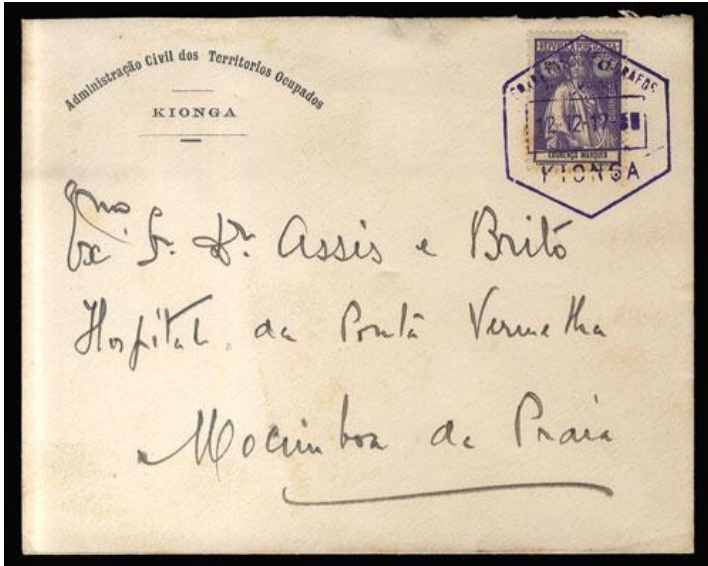 Administração Civil dos Territorios Ocupados
KIONGA
REPUBLICA PORTUGUESA
LOURENÇO MARQUES
12-12-17
KIONGA
Exmo Sr. Dr. Assis e Brito
Hospital da Ponta Vermelha
Mocimboa da Praia